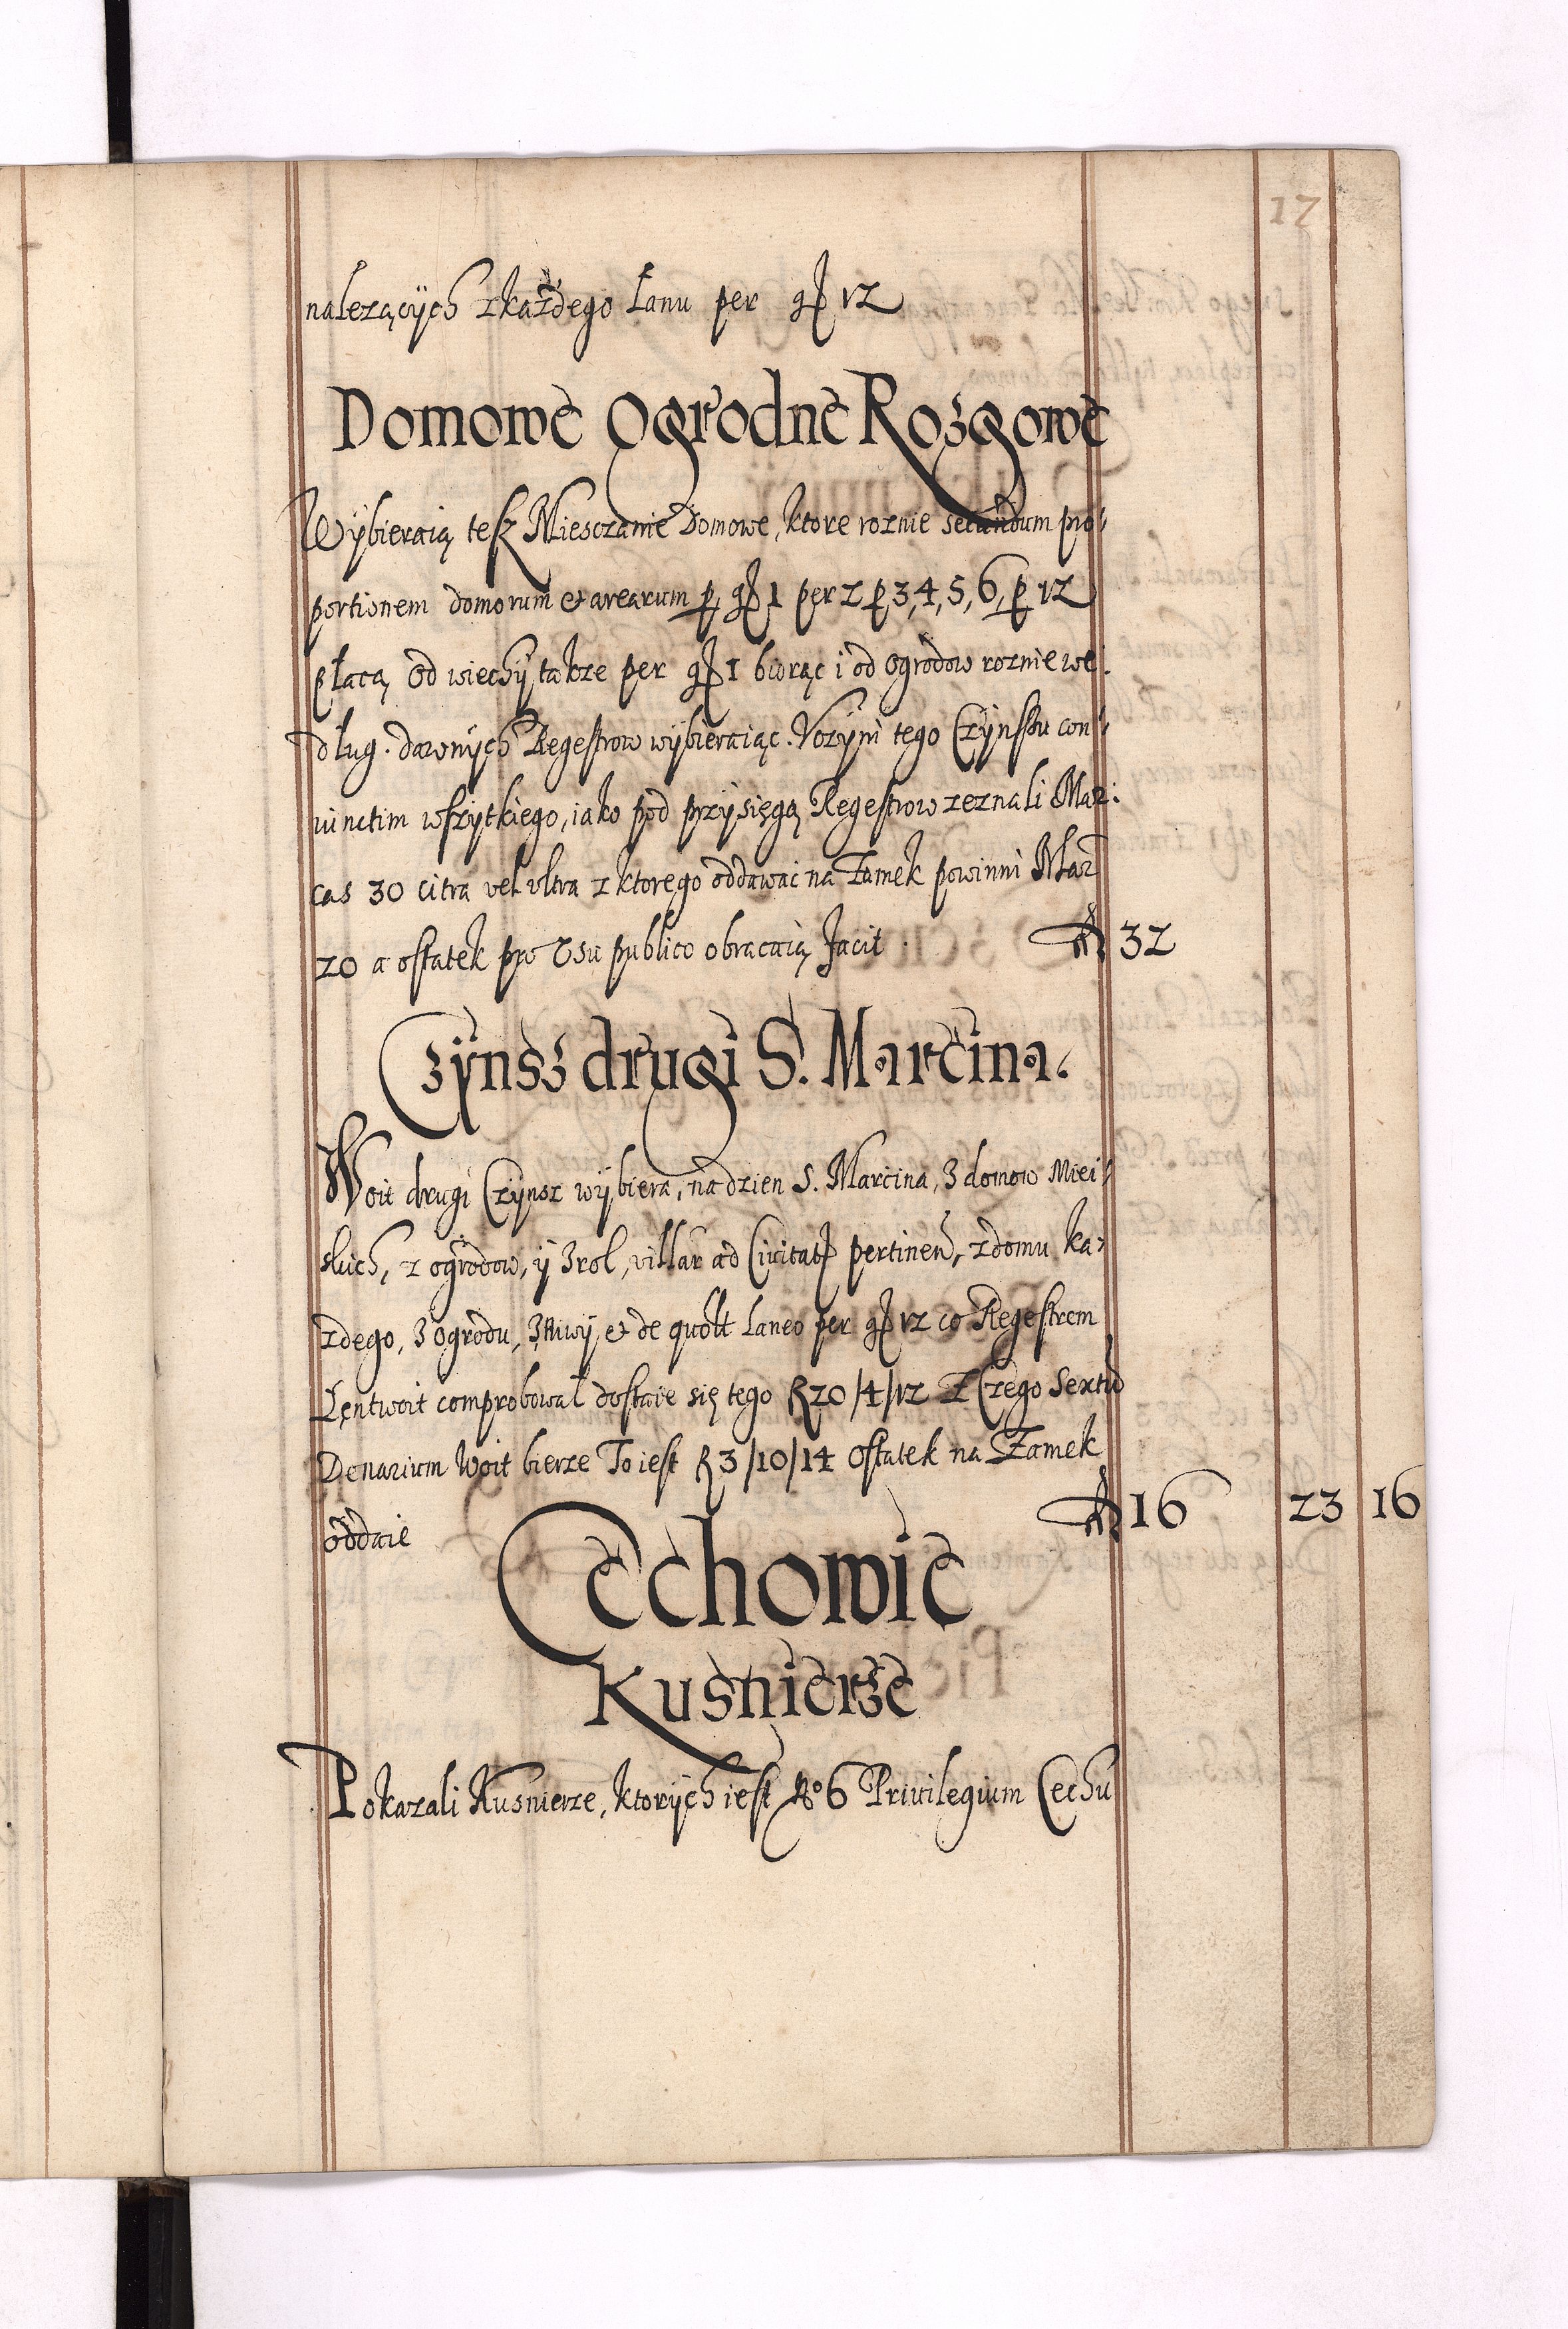 17
nalezącÿch z każdego Łanu per gꝭ 12
Domowe Ogrodne Rozgowe
Wÿbieraią tesz Miesczanie Domowe, ktore roznie secundum pro-
portionem domorum et arearum p gꝭ 1 per 2 p 3, 4, 5, 6, p 12
płacą, Od wiechÿ takze per gꝭ 1 biorąc i od Ogrodow roznie we-
dług dawnÿch Regestrow wÿbieraiąc. Vczÿni tego Czÿnssu con-
iunctim wszytkiego, iako pod przÿsięgą Regestrow zeznali Mar-
cas 30 citra vel vltra z ktorego oddawac na Zamek powinni Mar
20 a ostatek pro Vsu publico obracaią facit 32
Czÿnsz drugi S. Marcina.
Woit drugi Czÿnsz wÿbiera, na dzien S. Marcina, z domow Miei-
skich, z ogrodow, ÿ z rol, villar ad Civitatꝭ pertinen, z domu ka-
zdego, z Ogrodu, z Niwÿ, et de quolt Laneo per gꝭ 12 co Regestrem
Lentwoit comprobował dostaie się tego R 20/4/12 Z Czego Sextū
Denarium Woit bierze To iest R 3/10/14 Ostatek na Zamek
oddaie 16 23 16
Cechowie
Kusnierze
Pokazali Kusnierze, ktorÿch iest No 6 Privilegium Cechu